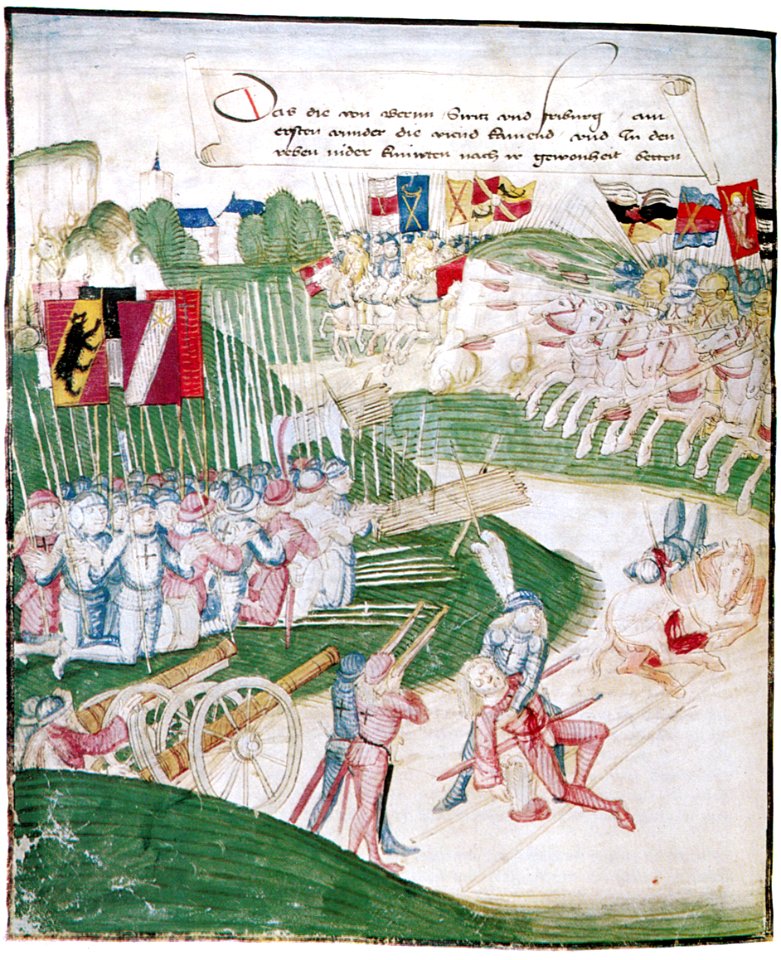 Das die von Bernn Switz und friburg am
ersten wunder die viend kamend und In den
reben nider knüwten nach ir gewonheit betten